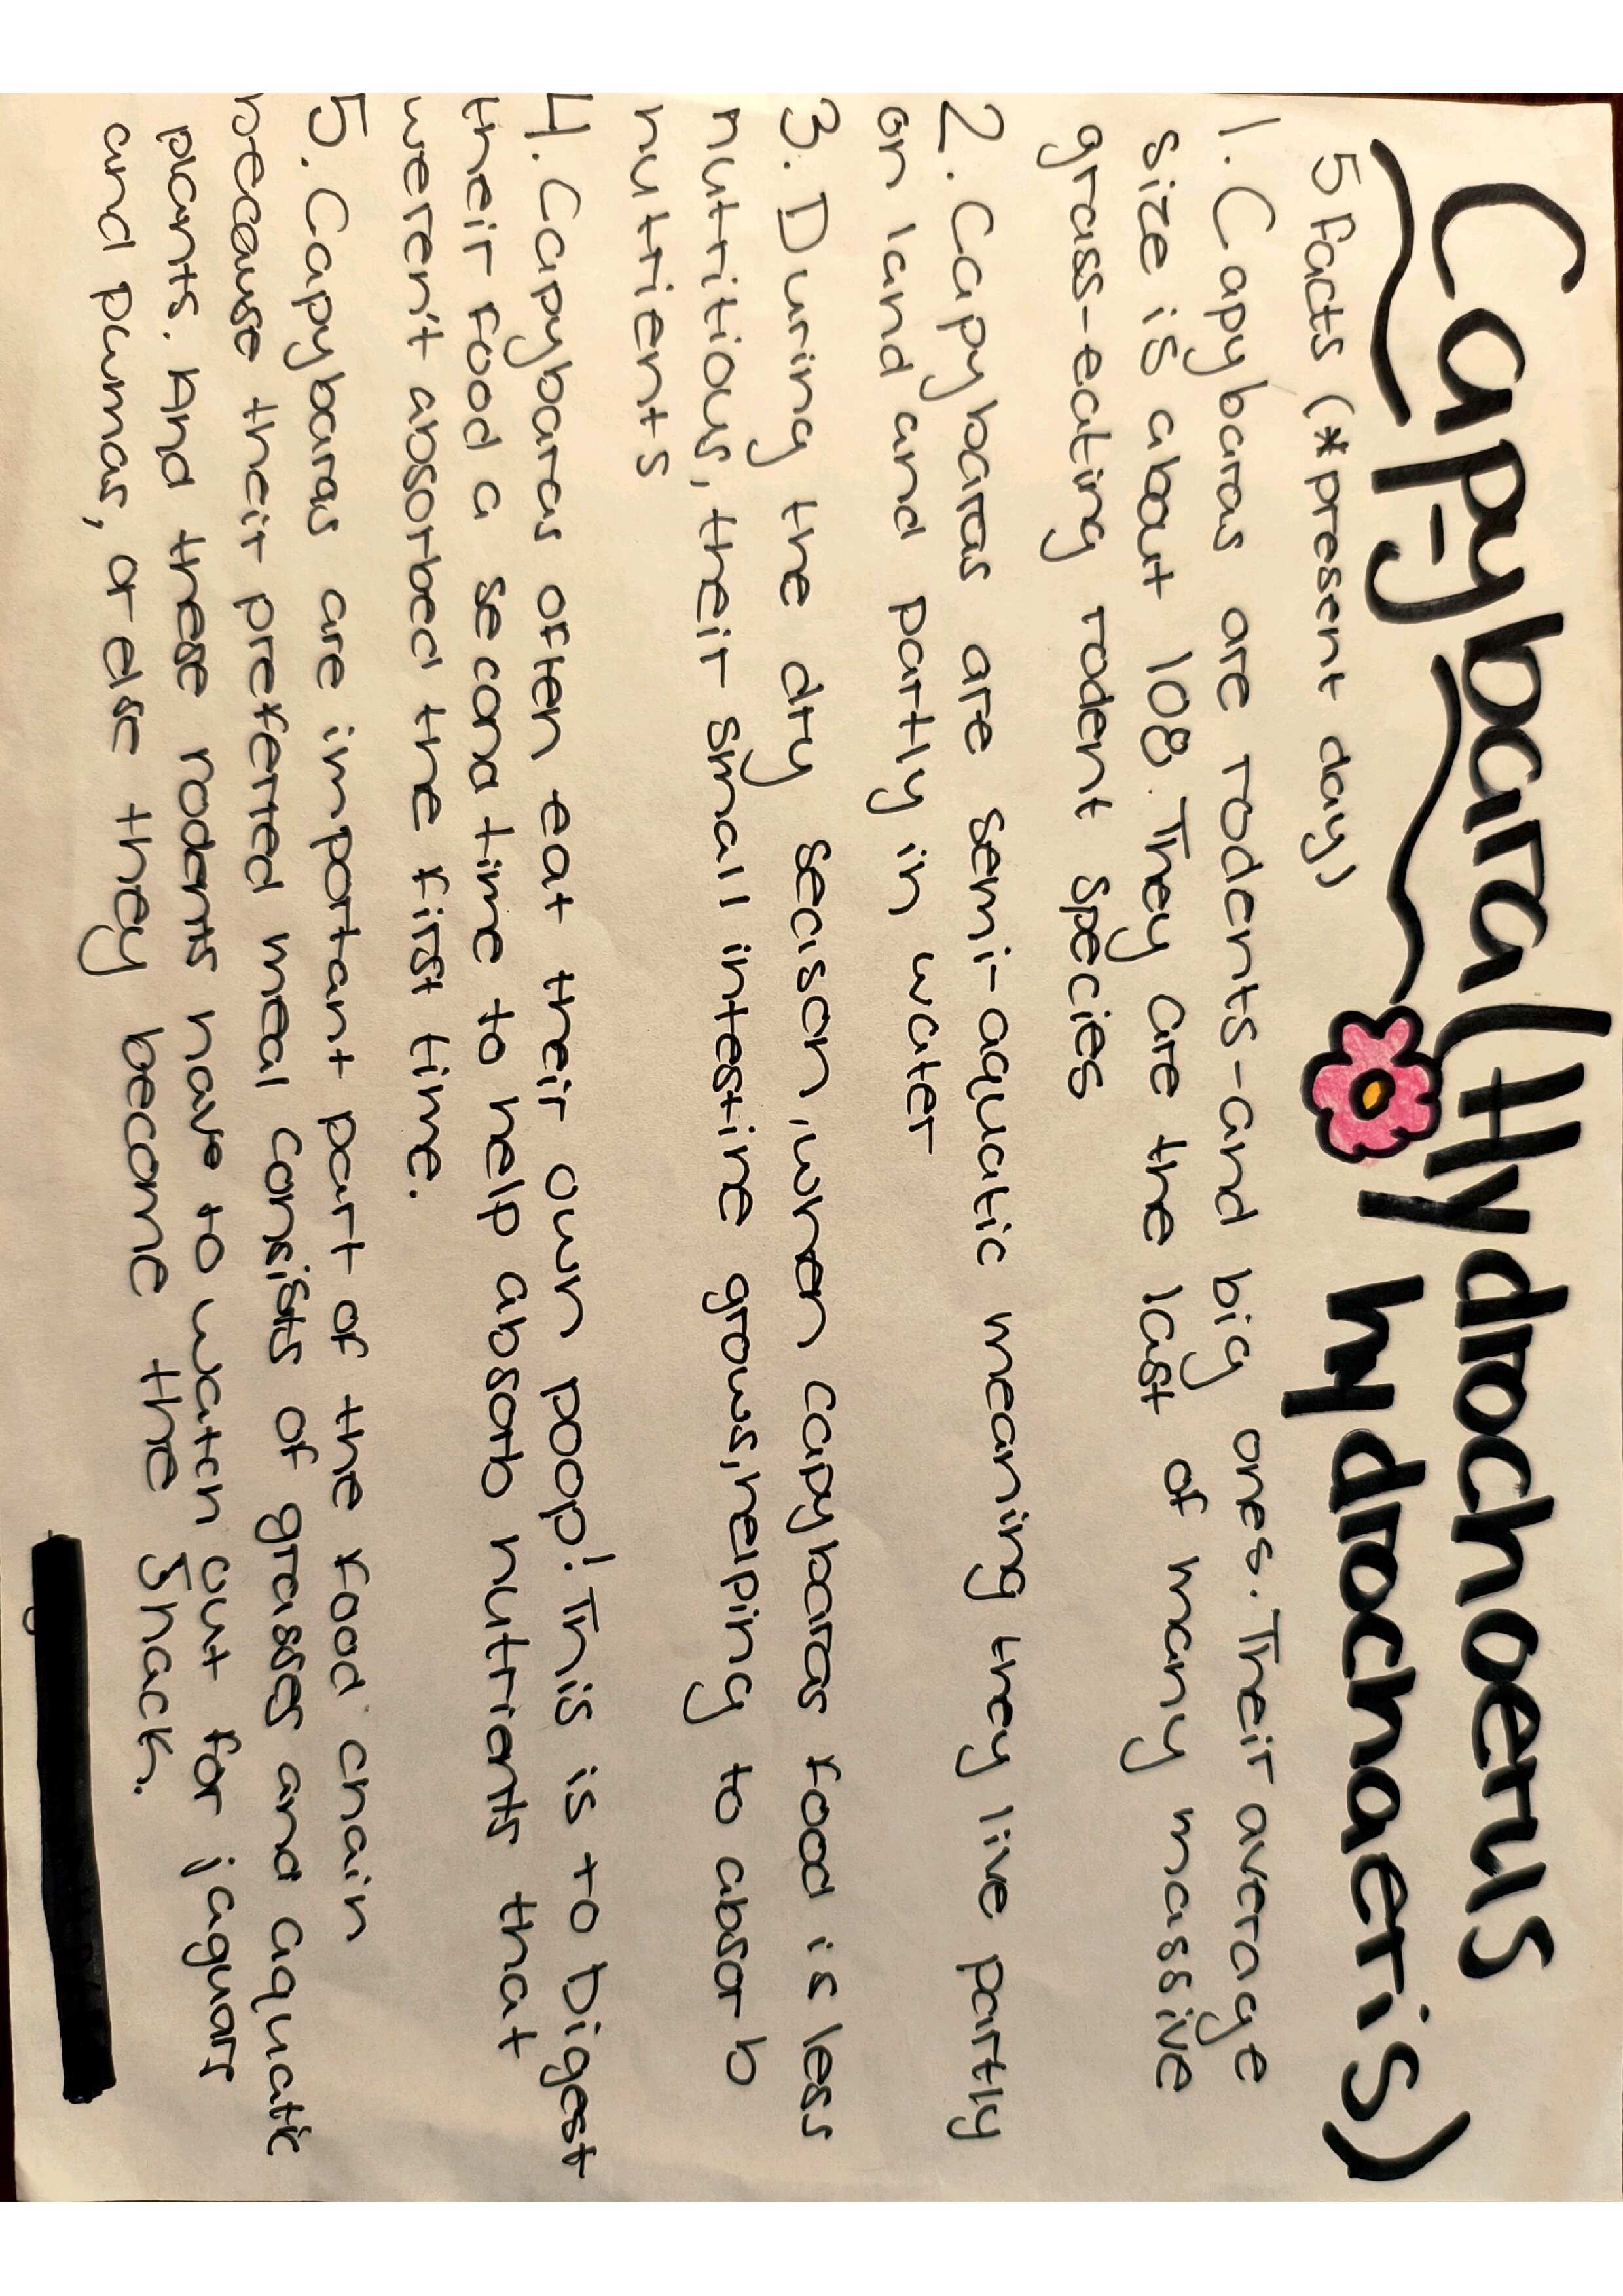 Capybara (Hydrochoerus
hydrochaeris)
5 facts (*present day)
1. Capybaras are rodents-and big ones. Their average
size is about 108. They are the last of many massive
grass-eating rodent species
2. Capybaras are semi-aquatic meaning they live partly
on land and partly in water
3. During the dry season, when capybaras food is less
nutritious, their small intestine grows, helping to absorb
nutrients
4. Capybaras often eat their own poop! This is to Digest
their food a second time to help absorb nutrients that
weren't absorbed the first time.
5. Capybaras are important part of the food chain
because their preferred meal consists of grasses and aquatic
plants. And these rodents have to watch out for jaguars
and pumas, or else they become the snack.